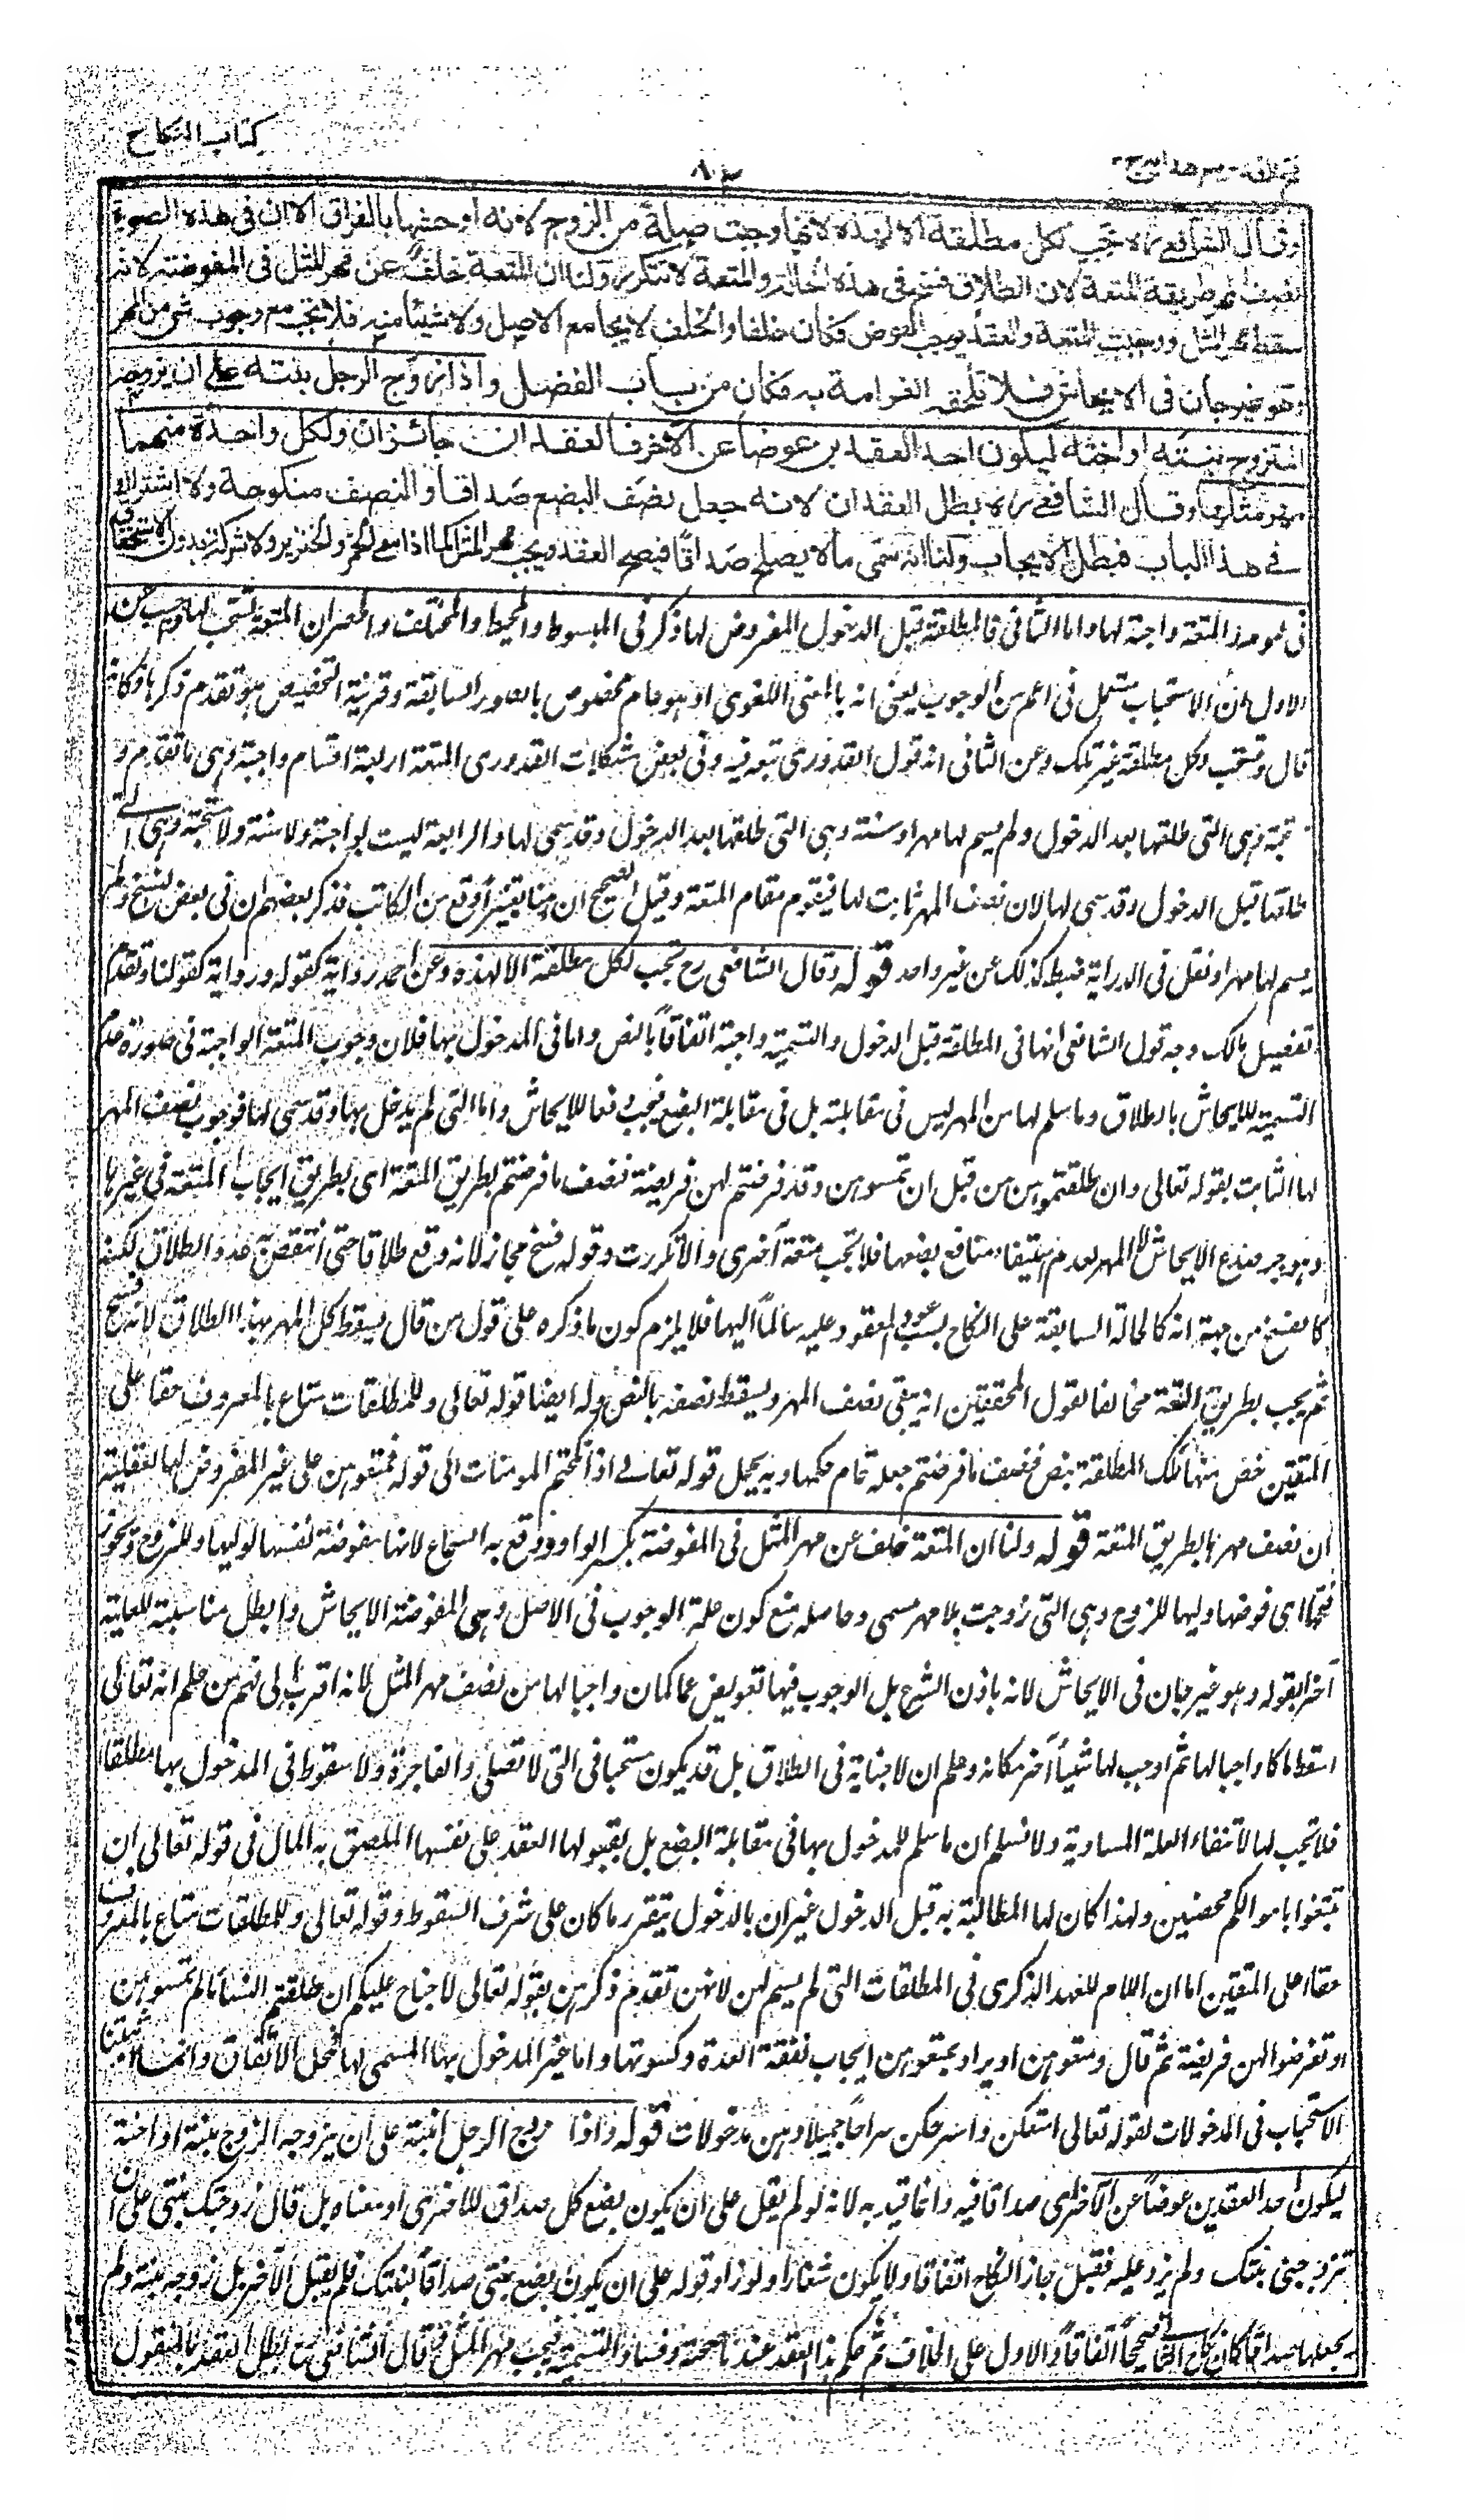 كتاب النكاح
وقال الشافعي رہ تجب لكل مطلقة الا لهذه لانها وجبت صلة من الزوج لانه اوحشها بالفراق الا ان في هذه الصورة
نصف المهر طريقة المتعة لان الطلاق فسخ في هذه الحالة والمتعة لا تتكرر ولنا ان المتعة خلف عن مهر المثل في المفوضة لانه
سقط مهر المثل ووجبت المتعة والعقد يوجب العوض فكان خلفا والخلف لا يجامع الاصل ولا شيئا منه فلا تجب مع وجوب شئ من المهر
وهو غير جان في الايحاش فلا تلحقه الغرامة به فكان من باب الفضل واذا زوج الرجل بنته على ان يزوجه
المتزوج بنته او اخته ليكون احد العقدين عوضا عن الآخر فالعقدان جائزان ولكل واحدة منهما
مهر مثلها وقال الشافعي رہ بطل العقدان لانه جعل نصف البضع صداقا والنصف منكوحة ولا اشتراك
في هذا الباب فبطل الايجاب ولنا انه سمى ما لا يصلح صداقا فيصح العقد ويجب مهر المثل كما اذا سمى الخمر والخنزير ولا شركة بدون الاستحقاق
المتعة واجبة لها واما الثاني فالمطلقة قبل الدخول المفروض لها ذكر في المبسوط والمحيط والمختلف والحصر ان المتعة تستحب لها واجيب عن
الاول بان الاستحباب مستعمل في اعم من الوجوب يعني انه بالمعنى اللغوي او هو عام مخصوص بالصور السابقة وقرينة التخصيص هو تقدم ذكرها وكانه
قال وتستحب لكل مطلقة غير تلك وعن الثاني انه قول القدوري تبعه فيه وفي بعض مشكلات القدوري المتعة اربعة اقسام واجبة وهي ما تقدم و
تحبة وهي التي طلقها بعد الدخول ولم يسم لها مهرا وسنة وهي التي طلقها بعد الدخول وقد سمى لها والرابعة ليست بواجبة ولا سنة ولا مستحبة وهي التي
طلقها قبل الدخول وقد سمى لها لان نصف المهر ثابت لها فيقوم مقام المتعة وقيل الصحيح ان هنا تغييرا وقع من الكاتب فذكر بعضهم ان في بعض النسخ ولم
يسم لها مهرا ونقل في الدراية ضبط كذلك عن غير واحد قوله وقال الشافعي رح تجب لكل مطلقة الا لهذه وعن احمد رواية كقوله ورواية كقولنا وتقدم
تفصيل مالك وجه قول الشافعي انها في المطلقة قبل الدخول والتسمية واجبة اتفاقا بالنص واما في المدخول بها فلان وجوب المتعة الواجبة في صورة عدم
التسمية للايحاش بالطلاق وما سلم لها من المهر ليس في مقابلته بل في مقابلة البضع فيجب دفعا للايحاش واما التي لم يدخل بها وقد سمى لها فوجوب نصف المهر
لها الثابت بقوله تعالى وان طلقتموهن من قبل ان تمسوهن وقد فرضتم لهن فريضة فنصف ما فرضتم بطريق المتعة اى بطريق ايجاب المتعة في غيرها
وهو جبر صدع الايحاش لا المهر لعدم استيفاء منافع بضعها فلا تجب متعة اخرى والا تكررت وقوله فسخ مجاز لانه وقع طلاقا حتى انتقصت عدد الطلاق لكنه
كالفسخ من جهة انه كالحالة السابقة على النكاح بسبب عود المعقود عليه سالما اليها فلا يلزم كون ما ذكره على قول من قال يسقط كل المهر بهذا الطلاق لانه فسخ
ثم يجب بطريق المتعة مخالفا لقول المحققين انه يبقى نصف المهر ويسقط نصفه بالنص وله ايضا قوله تعالى وللمطلقات متاع بالمعروف حقا على
المتقين خص منها تلك المطلقة بنص فنصف ما فرضتم جعله تمام حكمها وبه يحمل قوله تعالى اذا نكحتم المومنات الى قوله فمتعوهن على غير المفروض لها لعقلية
ان نصف مهرها بطريق المتعة قوله ولنا ان المتعة خلف عن مهر المثل في المفوضة بكسر الواو ووقع به السماع لانها مفوضة نفسها لوليها وللزوج ويجوز
فتحها اى فوضها وليها للزوج وهي التي زوجت بلا مهر مسمى وحاصله منع كون علة الوجوب في الاصل وهي المفوضة الايحاش وابطل مناسبته للعلية
آخرا بقوله وهو غير جان في الايحاش لانه باذن الشرع بل الوجوب فيها تعويض عما كان واجبا لها من نصف مهر المثل لانه اقرب الى فهم من علم انه تعالى
اسقط ما كا واجبا لها ثم اوجب لها شيئا آخر مكانه وعلم ان لا جناية في الطلاق بل قد يكون مستحبا في التي لا تصلي والفاجرة ولا سقوط في المدخول بها مطلقا
فلا تجب لها لانتفاء العلة المساوية ولا نسلم ان ما سلم للمدخول بها في مقابلة البضع بل بقبولها العقد على نفسها الملصق به المال في قوله تعالى ان
تبتغوا باموالكم محصنين ولهذا كان لها المطالبة به قبل الدخول غير ان بالدخول يتقرر ما كان على شرف السقوط وقوله تعالى وللمطلقات متاع بالمعروف
حقا على المتقين اما ان اللام للعهد الذكرى في المطلقات التي لم يسم لهن لانهن تقدم ذكرهن بقوله تعالى لا جناح عليكم ان طلقتم النساء ما لم تمسوهن
او تفرضوا لهن فريضة ثم قال ومتعوهن او يراد بمتعوهن ايجاب نفقة العدة وكسوتها واما غير المدخول بها المسمى لها فمحل الاتفاق وانما اثبتنا
الاستحباب في المدخولات لقوله تعالى امتعكن واسرحكن سراحا جميلا وهن مدخولات قوله واذا زوج الرجل ابنته على ان يزوجه الزوج بنته او اخته
ليكون احد العقدين عوضا عن الآخر اى صداقا فيه وانما قيد به لانه لو لم يقل على ان يكون بضع كل صداق للاخرى او معناه بل قال زوجتك بنتي على ان
تزوجني بنتك ولم يزد عليه فقبل جاز النكاح اتفاقا ولا يكون شغارا ولو زاد قوله على ان يكون بضع بنتي صداقا لبنتك فلم يقبل الآخر بل زوجه بنته ولم
يجعلها صداقا كان نكاح الثاني صحيحا اتفاقا والاول على الخلاف ثم حكم هذا العقد عندنا صحته وفساد التسمية فيجب مهر المثل وقال الشافعي رح بطل العقد بالمنقول